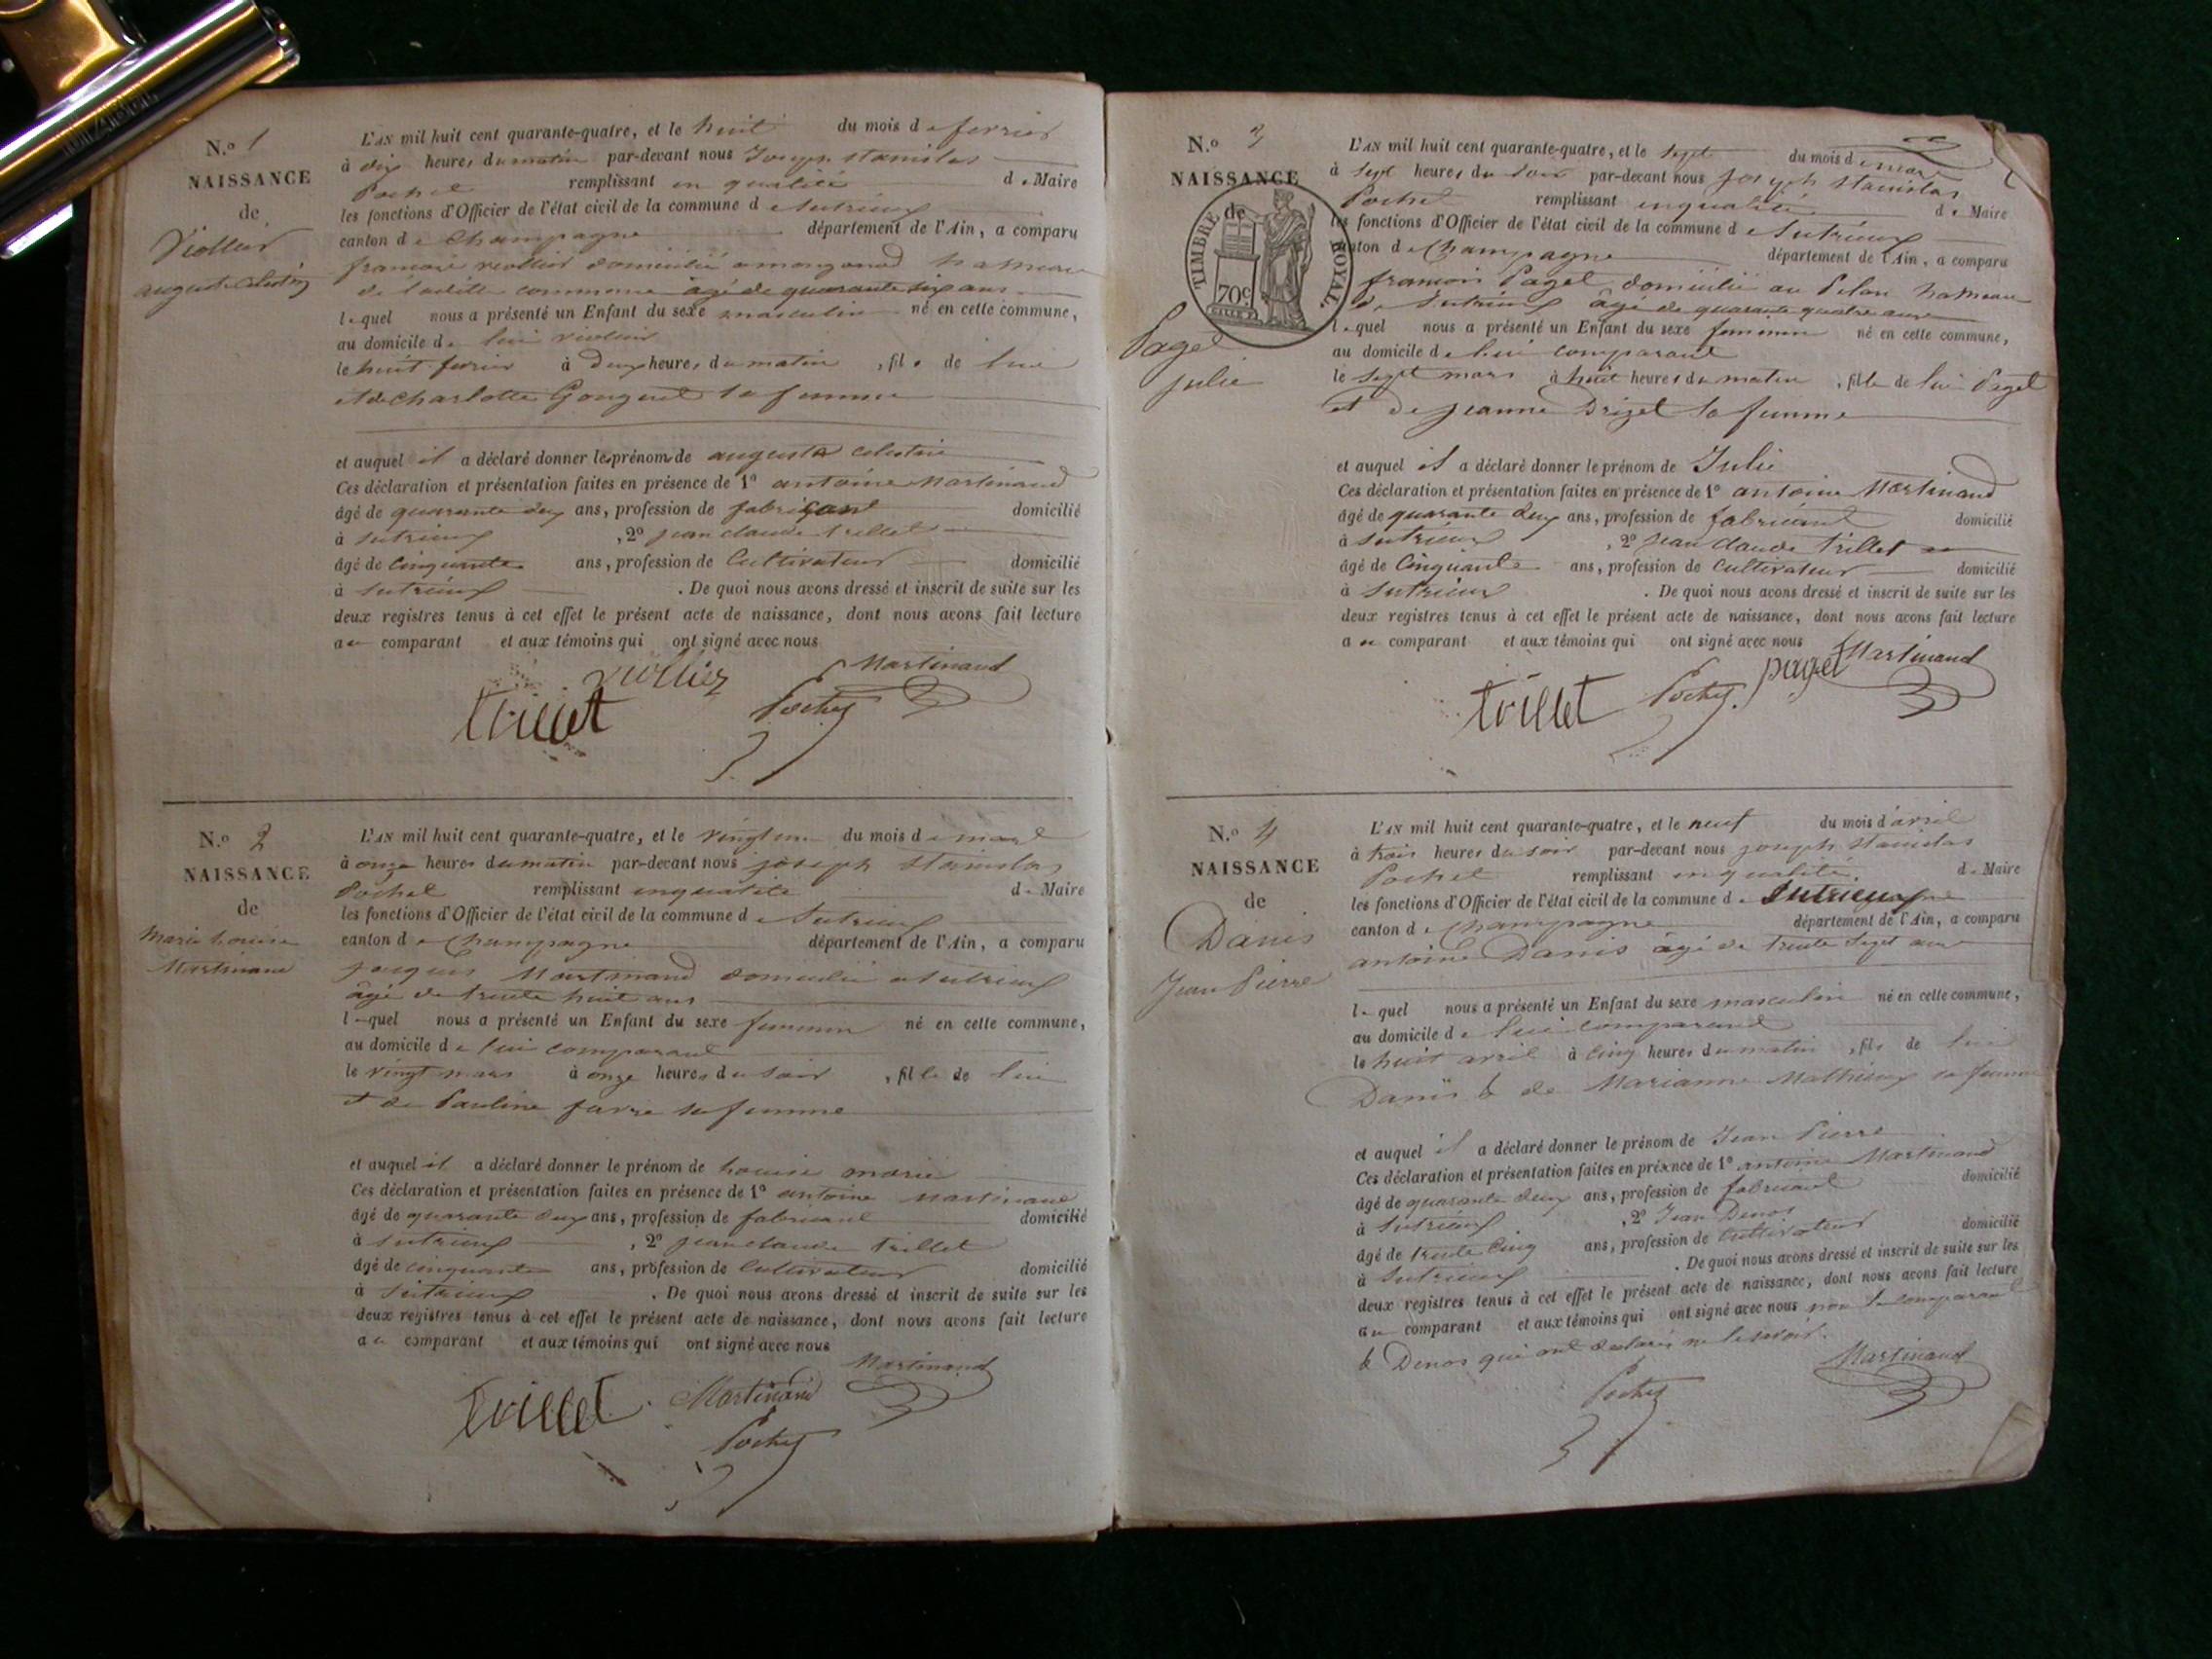 N.o 1
NAISSANCE
de
Viollier
auguste Celestin
L'AN mil huit cent quarante-quatre, et le huit du mois de fevrier
à dix heures du matin par-devant nous Joseph Stanislas
Pochet remplissant en qualité de Maire
les fonctions d'Officier de l'état civil de la commune de Sutrieux
canton de Champagne département de l'Ain, a comparu
françois viollier domicilié a mongonod hameau
de ladite commune âgé de quarante six ans
lequel nous a présenté un Enfant du sexe masculin né en cette commune,
au domicile de lui viollier
le huit fevrier à deux heures du matin, fils de lui
et de Charlotte Gonguet sa femme
et auquel il a déclaré donner les prénoms de auguste celestin
Ces déclaration et présentation faites en présence de 1o antoine Martinand
âgé de quarante deux ans, profession de fabricant domicilié
à Sutrieux, 2o jean claude trillet
âgé de Cinquante ans, profession de Cultivateur domicilié
à Sutrieux. De quoi nous avons dressé et inscrit de suite sur les
deux registres tenus à cet effet le présent acte de naissance, dont nous avons fait lecture
au comparant et aux témoins qui ont signé avec nous
Martinand
viollier
trillet Pochet
N.o 2
NAISSANCE
de
Marie Louise
Martinand
L'AN mil huit cent quarante-quatre, et le vingt un du mois de mars
à onze heures du matin par-devant nous joseph Stanislas
Pochet remplissant en qualité de Maire
les fonctions d'Officier de l'état civil de la commune de Sutrieux
canton de Champagne département de l'Ain, a comparu
jacques Martinand domicilié a Sutrieux
âgé de trente huit ans
lequel nous a présenté un Enfant du sexe feminin né en cette commune,
au domicile de lui comparant
le vingt mars à onze heures du soir, fille de lui
et de Pauline favre sa femme
et auquel il a déclaré donner le prénom de Louise marie
Ces déclaration et présentation faites en présence de 1o antoine Martinand
âgé de quarante deux ans, profession de fabricant domicilié
à Sutrieux, 2o jean claude trillet
âgé de cinquante ans, profession de Cultivateur domicilié
à Sutrieux. De quoi nous avons dressé et inscrit de suite sur les
deux registres tenus à cet effet le présent acte de naissance, dont nous avons fait lecture
au comparant et aux témoins qui ont signé avec nous
Martinand
trillet Martinand
Pochet
N.o 3
NAISSANCE
de
TIMBRE ROYAL
70c
Pagel
julie
L'AN mil huit cent quarante-quatre, et le Sept du mois de mars
à Sept heures du Soir par-devant nous joseph Stanislas
Pochet remplissant en qualité de Maire
les fonctions d'Officier de l'état civil de la commune de Sutrieux
canton de Champagne département de l'Ain, a comparu
françois Pagel domicilié au hameau
de Sutrieux âgé de quarante quatre ans
lequel nous a présenté un Enfant du sexe feminin né en cette commune,
au domicile de lui comparant
le Sept mars à huit heures du matin, fille de lui Pagel
et de jeanne Drizet sa femme
et auquel il a déclaré donner le prénom de Julie
Ces déclaration et présentation faites en présence de 1o antoine Martinand
âgé de quarante deux ans, profession de fabricant domicilié
à Sutrieux, 2o jean claude trillet
âgé de Cinquante ans, profession de Cultivateur domicilié
à Sutrieux. De quoi nous avons dressé et inscrit de suite sur les
deux registres tenus à cet effet le présent acte de naissance, dont nous avons fait lecture
au comparant et aux témoins qui ont signé avec nous
trillet Pochet pagel Martinand
N.o 4
NAISSANCE
de
Danis
Jean Pierre
L'AN mil huit cent quarante-quatre, et le neuf du mois d'avril
à trois heures du soir par-devant nous joseph Stanislas
Pochet remplissant en qualité de Maire
les fonctions d'Officier de l'état civil de la commune de Sutrieux
canton de Champagne département de l'Ain, a comparu
antoine Danis âgé de trente Sept ans
lequel nous a présenté un Enfant du sexe masculin né en cette commune,
au domicile de lui comparant
le huit avril à cinq heures du matin, fils de lui
Danis & de Marianne Mathieux sa femme
et auquel il a déclaré donner le prénom de Jean Pierre
Ces déclaration et présentation faites en présence de 1o antoine Martinand
âgé de quarante deux ans, profession de fabricant domicilié
à Sutrieux, 2o Jean Denos
âgé de trente cinq ans, profession de Cultivateur domicilié
à Sutrieux. De quoi nous avons dressé et inscrit de suite sur les
deux registres tenus à cet effet le présent acte de naissance, dont nous avons fait lecture
au comparant et aux témoins qui ont signé avec nous non le comparant
& Denos qui ont déclarés ne le savoir.
Martinand
Pochet